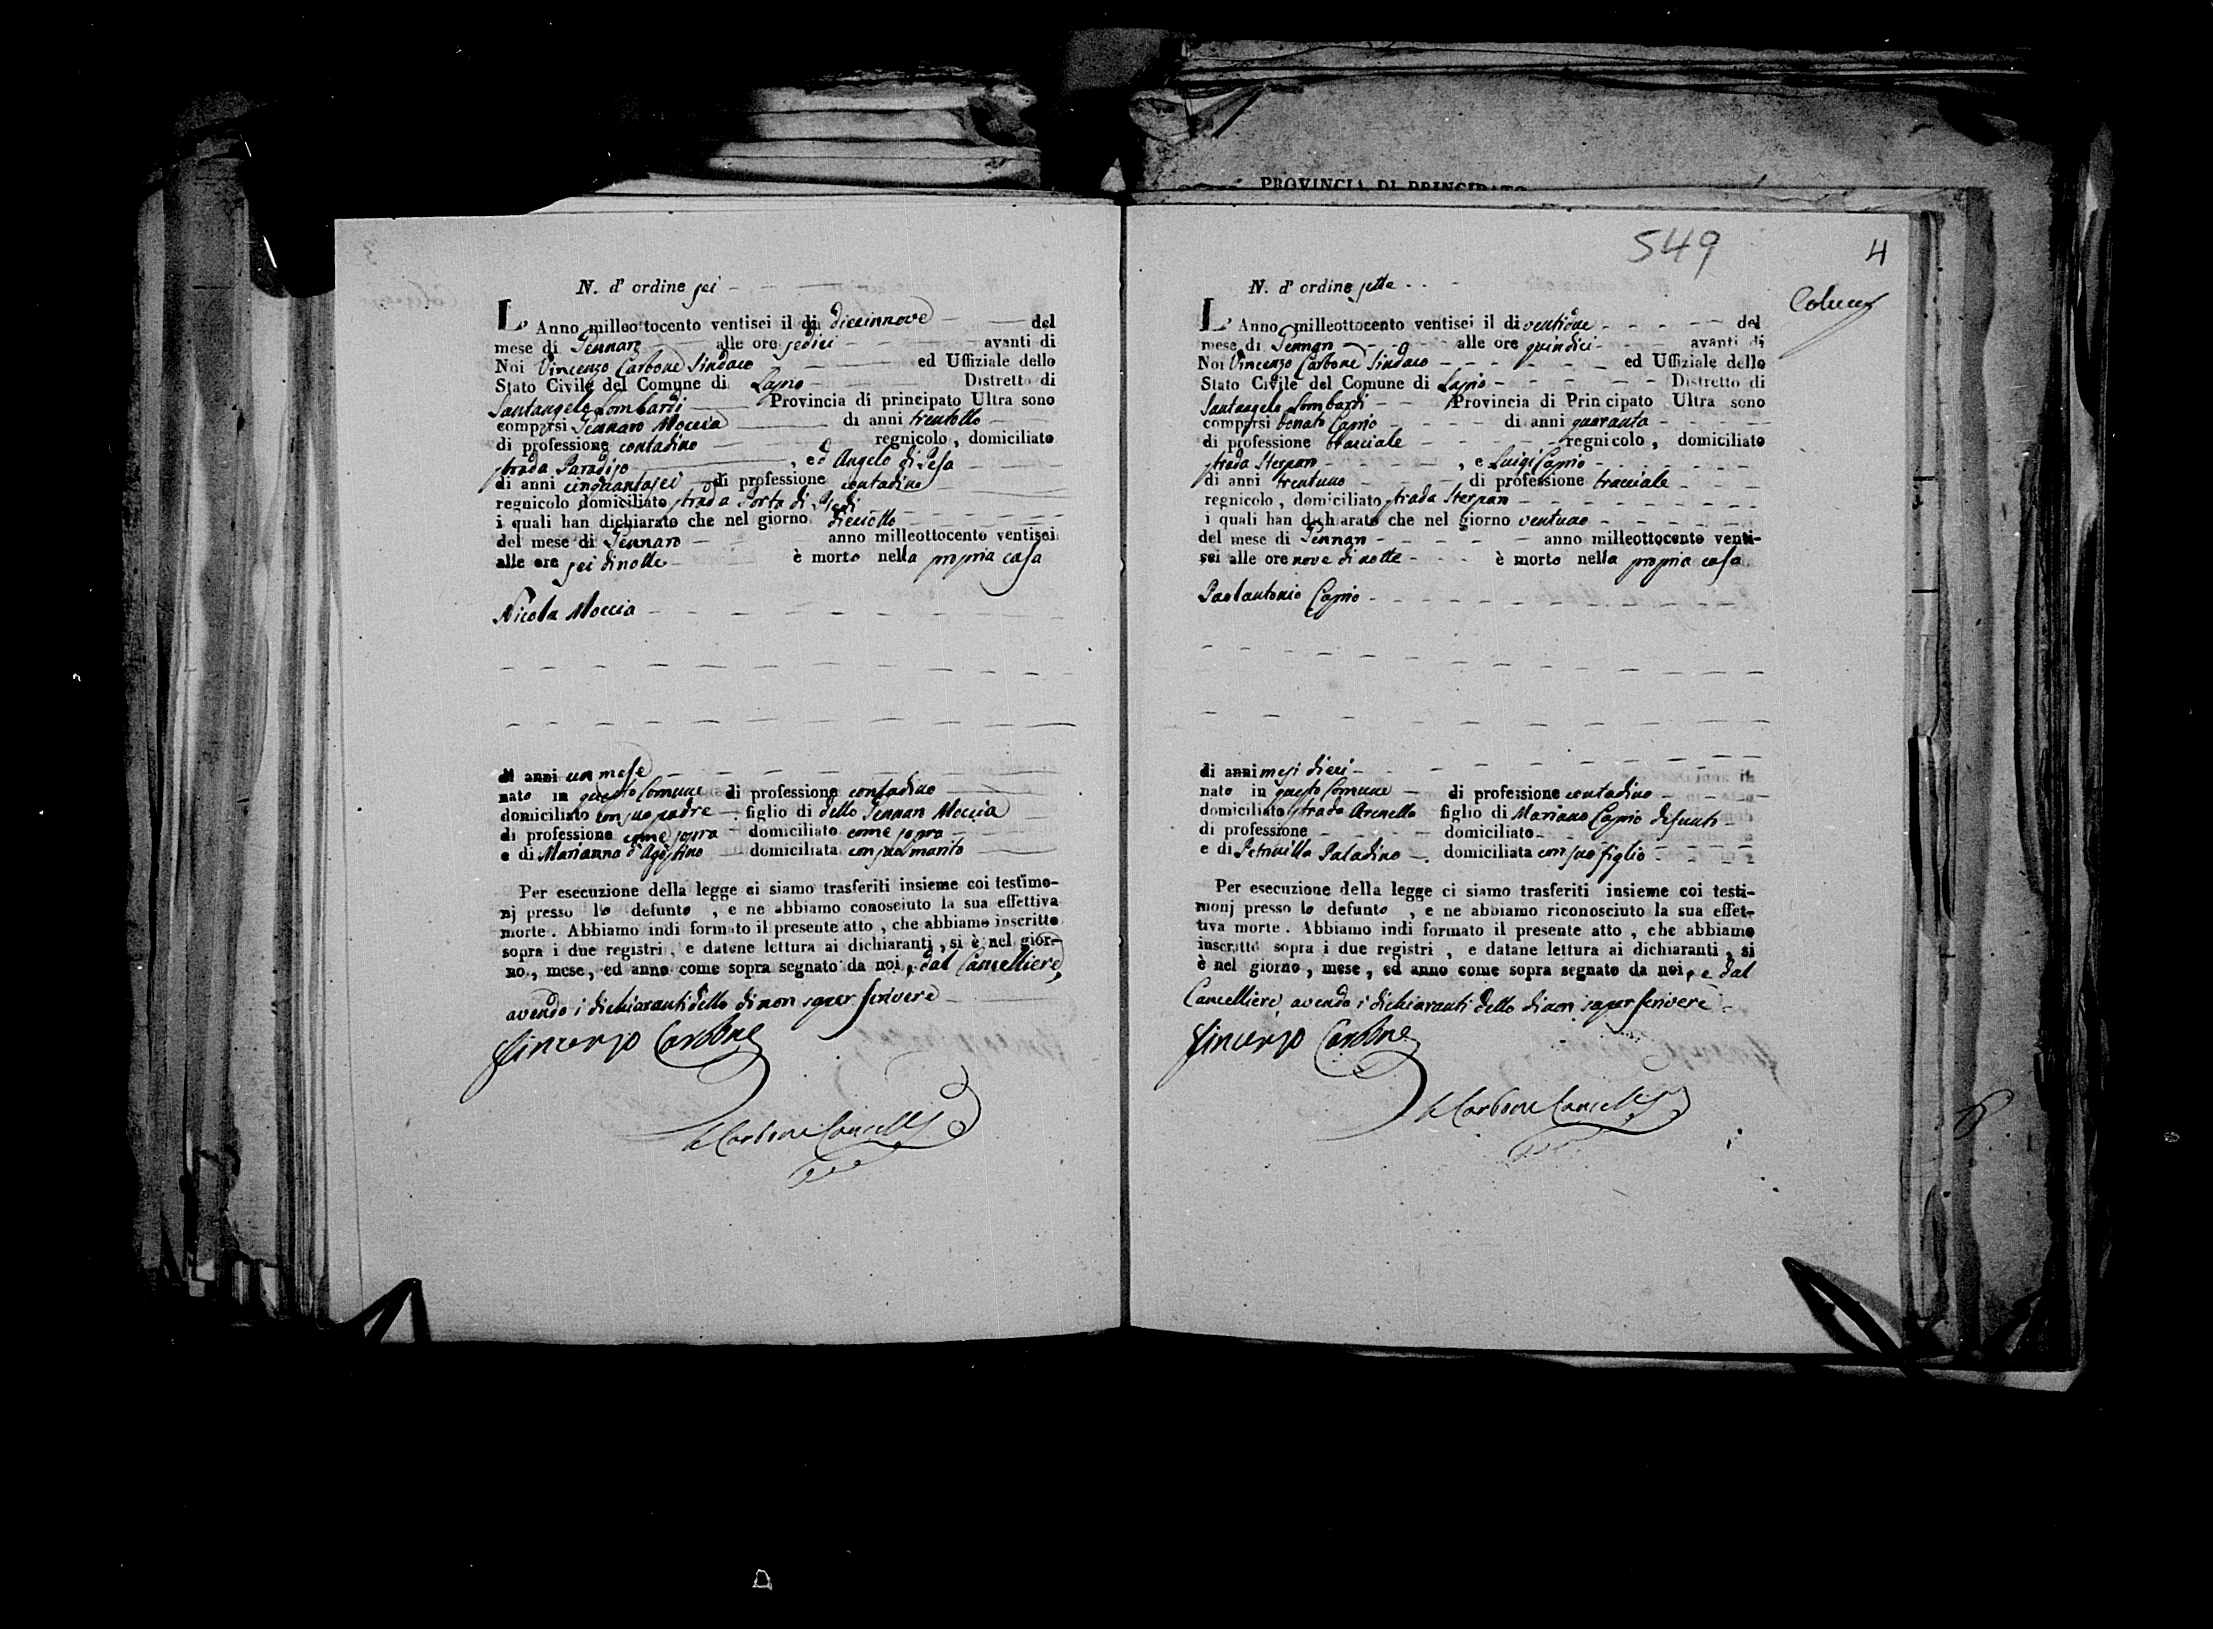 N. d' ordine sei
L' Anno milleottocento ventisei il di diecinnove del
mese di Gennaro alle ore sedici avanti di
Noi Vincenzo Carbone Sindaco ed Uffiziale dello
Stato Civile del Comune di Lapio Distretto di
Santangelo Lombardi Provincia di principato Ultra sono
comparsi Gennaro Moccia di anni trentotto
di professione contadino regnicolo, domiciliato
strada Paradiso, ed Angelo di Pesa
di anni cinquantasei di professione contadino
regnicolo domiciliato strada Porta di Piedi
i quali han dichiarato che nel giorno dieciotto
del mese di Gennaro anno milleottocento ventisei
alle ore sei di notte è morto nella propria casa
Nicola Moccia
di anni un mese
nato in questo Comune di professione contadino
domiciliato con suo padre figlio di detto Gennaro Moccia
di professione come sopra domiciliato come sopra
e di Marianna d'Agostino domiciliata con suo marito
Per esecuzione della legge ci siamo trasferiti insieme coi testimo-
nj presso lo defunto, e ne abbiamo conosciuto la sua effettiva
morte. Abbiamo indi formato il presente atto, che abbiamo inscritto
sopra i due registri, e datene lettura ai dichiaranti, si è nel gior-
no, mese, ed anno come sopra segnato da noi, dal Cancelliere,
avendo i dichiaranti detto di non saper scrivere
Vincenzo Carbone
Carbone Cancell
PROVINCIA DI PRINCIPATO
549
4
N. d' ordine sette
L' Anno milleottocento ventisei il di ventidue del
mese di Gennaro alle ore quindici avanti di
Noi Vincenzo Carbone Sindaco ed Uffiziale dello
Stato Civile del Comune di Lapio Distretto di
Santangelo Lombardi Provincia di Principato Ultra sono
comparsi Donato Caprio di anni quaranta
di professione bracciale regnicolo, domiciliato
strada, e Luigi Caprio
di anni trentuno di professione bracciale
regnicolo, domiciliato strada
i quali han dichiarato che nel giorno ventuno
del mese di Gennaro anno milleottocento venti-
sei alle ore nove di notte è morto nella propria casa
Paolantonio Caprio
di anni mesi dieci
nato in questo Comune di professione contadino
domiciliato strada Arenella figlio di Mariano Caprio defunto
di professione domiciliato
e di Petronilla Paladino domiciliata con suo figlio
Per esecuzione della legge ci siamo trasferiti insieme coi testi-
monj presso lo defunto, e ne abbiamo riconosciuto la sua effet-
tiva morte. Abbiamo indi formato il presente atto, che abbiamo
inscritto sopra i due registri, e datane lettura ai dichiaranti, si
è nel giorno, mese, ed anno come sopra segnato da noi, e dal
Cancelliere avendo i dichiaranti detto di non saper scrivere
Vincenzo Carbone
Carbone Cancell